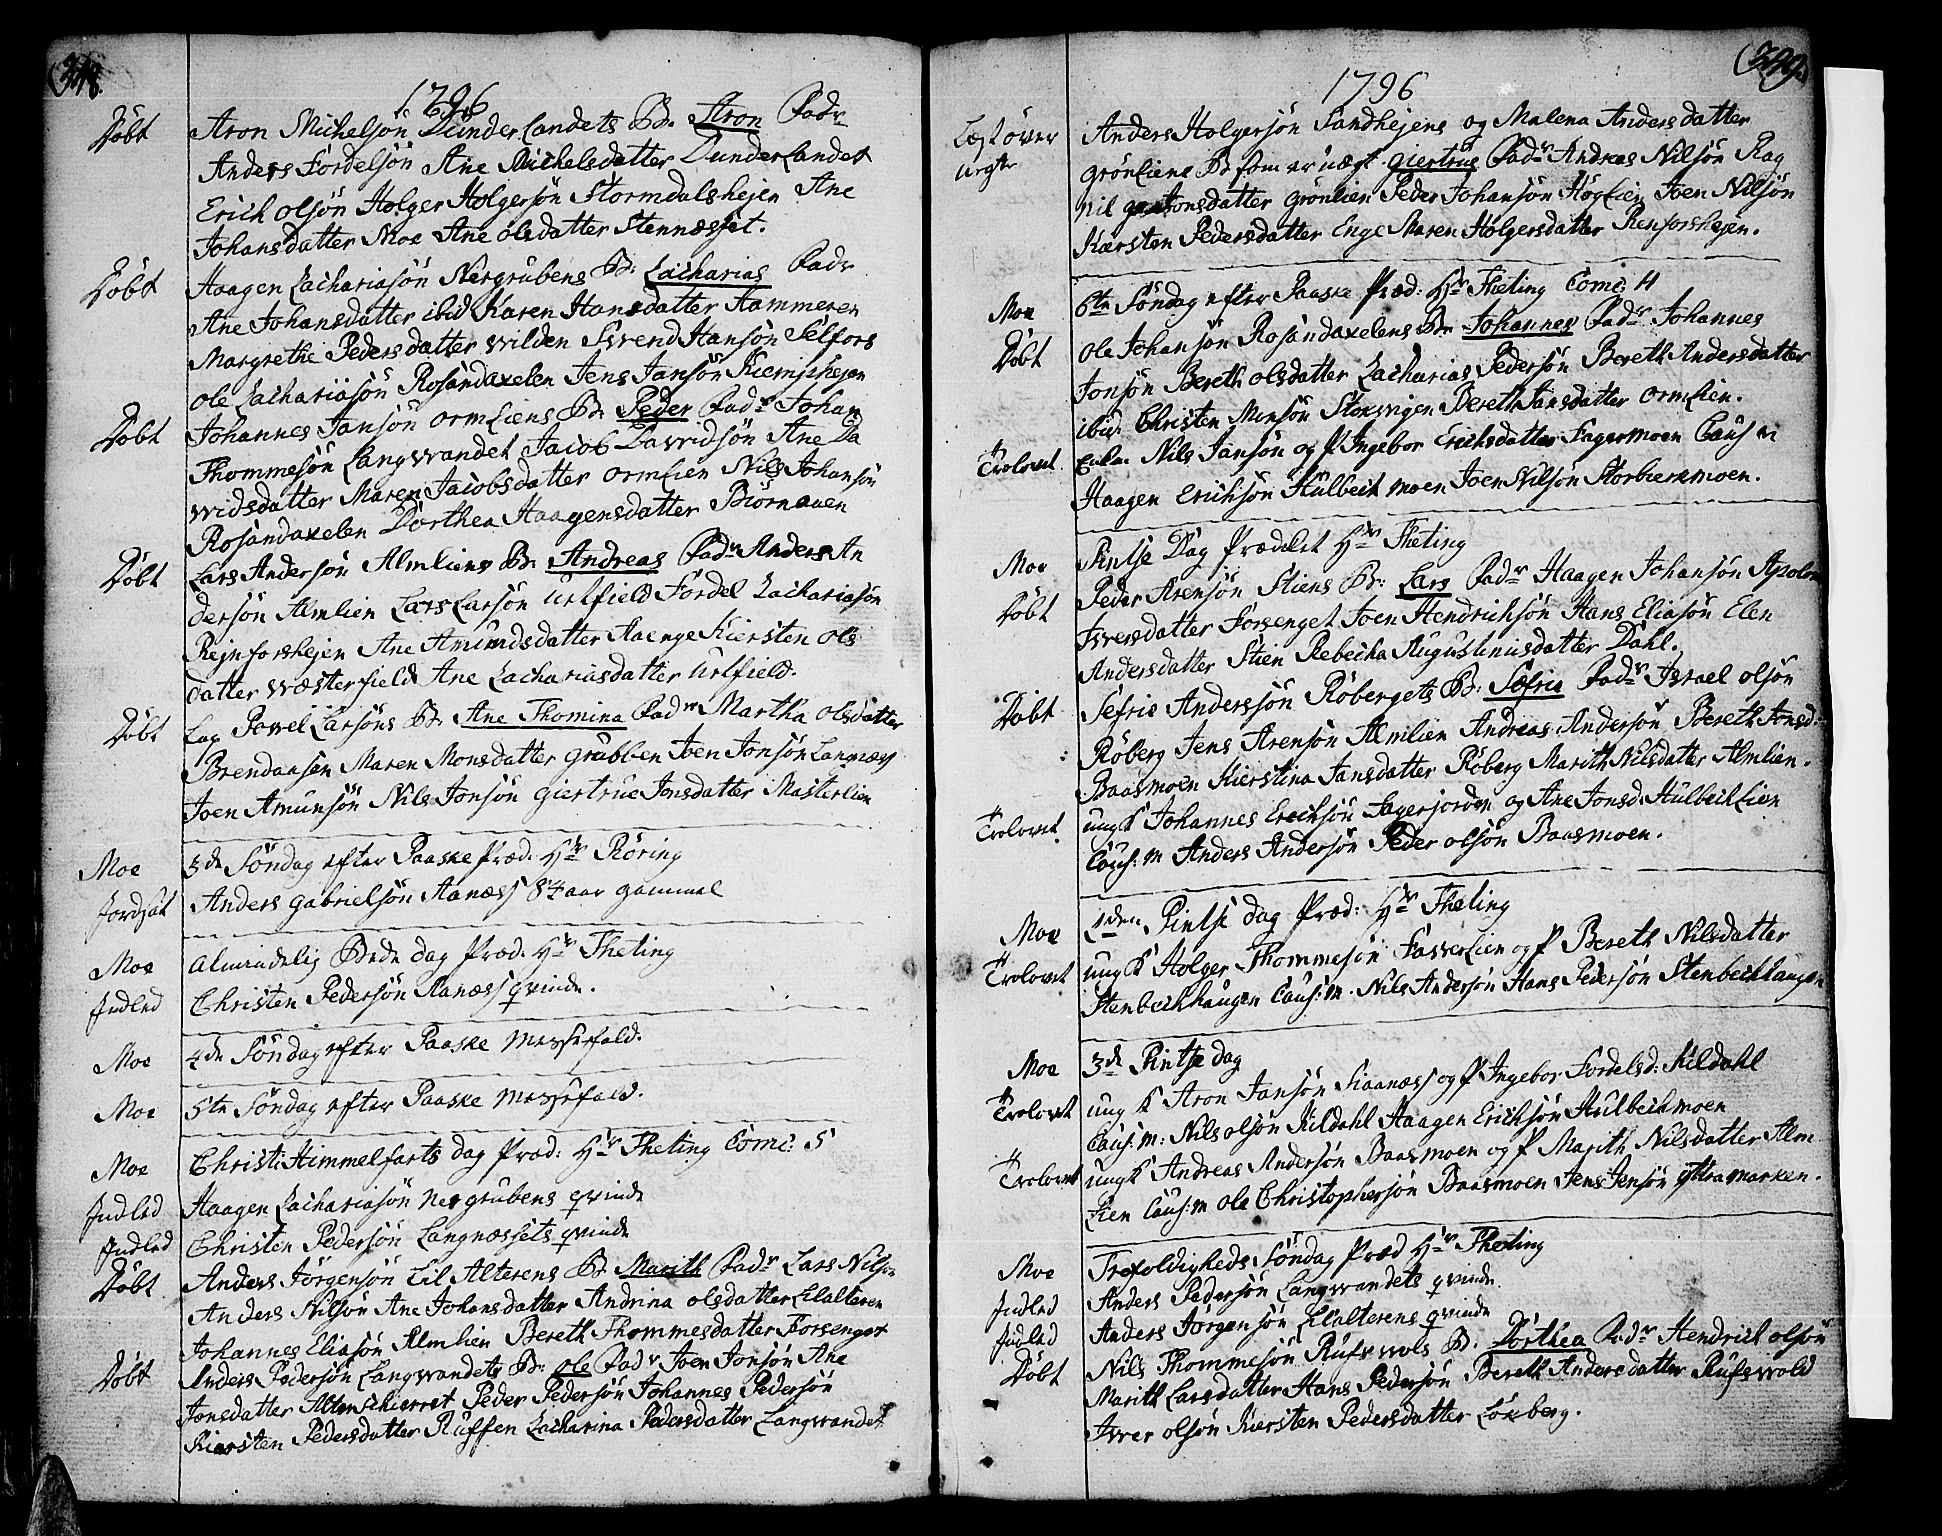 348.
1796
Döbt Aron Michelsön Dunderlandets B. Aron Fadr
Anders Fordelsön Ane Michelsdatter Dunderlandet
Erich olsön Holger Holgersön Stormdalshejen Ane
Johansdatter Moe Ane olsdatter Stennæsset.
Döbt Haagen Zachariasön Nergrubens B: Zacharias Fadr
Ane Johansdatter ibid Karen Hansdatter Hammeren
Margrethe Pedersdatter wilden Swend Hansön Selfors
ole Zachariasön Rosandaxelen Jens Jansön
Döbt Johannes Jansön ormliens B. Peder Fadr Johan
Thommesön Langwandet Jacob Dawidsön Ane Da
widsdatter Maren Jacobsdatter ormlien Nils Johansön
Rosandaxelen Dorthea Haagensdatter Biörnauen
Döbt Lars Andersön Almliens B: Andreas Fadr Anders An
dersön Almlien Lars Larsön urlfield Fordel Zachariasön
Rejnforshejen Ane Amundsdatter Aaenge Kiersten ols
datter wæsterfield Ane Zachariasdatter urlfield.
Döbt Lap Powel Larsöns B. Ane Thomina Fadr Martha olsdatter
Brendaasen Maren Monsdatter grubben Joen Jonsön Langnæss
Joen Amunsön Nils Jonsön giertrue Jonsdatter Masterlien
Moe 3de Söndag efter Paaske Præd. Hr Röring
Jordsat Anders gabrielsön Aanæss 84 aar gammel
Moe almindelig Bede dag Præd. Hr Theting
Indled Christen Pedersön Ranæss qvinde.
Moe 4de Söndag efter Paaske Messefald.
Moe 5te Söndag efter Paaske Messefald.
Moe Christi Himmelfarts dag Præd: Hr Theting Comc: 5
Indled Haagen Zachariasön nergrubens qvinde
Indled Christen Pedersön Langnæssets qvinde
Döbt Anders Jörgensön Lil Alterens B. Marith Fadr Lars Nilsön
Anders Nilsön Ane Johansdatter Andrina olsdatter Lilalteren
Johannes Eliasön Almlien Bereth Thommesdatter Forsenget
Döbt Anders Pedersön Langwandets B: ole Fadr Joen Jonsön Ane
Jonsdatter Peder Pedersön Johannes Pedersön
Kiersten Pedersdatter Ruffen Zacharina Pedersdatter Langwandet
349.
1796
Læst över Anders Holgersön Sandhejens og Malena Andersdatter
uegte grönliens B. som er uægt giertrue Fadr Andreas Nilsön Rag
nil Jonsdatter grönlien Peder Johansön Höglien Joen Nilsön
Kærsten Pedersdatter Enge Maren Holgersdatter Renforshejen.
Moe 6te Söndag efter Paaske Præd: Hr Theting Comc: 4
Döbt ole Johansön Rosandaxelens B. Johannes Fadr Johannes
Jonsön Bereth olsdatter Zacharias Pedersön Bereth Andersdatter
ibid: Christen Monsön Stokwigen Bereth Jansdatter ormlien.
Trolovet Enkm. Nils Jansön og P Ingebor Erichsdatter Fagermoen Caus m
Haagen Erichsön Hulbech moen Joen Nilsön Storbiermoen.
Moe Pintse Dag Prædeket Hr Theting
Döbt Peder Arensön Stiens B: Lars Fadr Haagen Johansön
Iwersdatter Forsenget Joen Hendrichsön Hans Eliasön Elen
Andersdatter Stien Rebecha Augustinusdatter Dahl.
Döbt Sefrie Anderssön Röbergets B: Sæfrie Fadr Israel olsön
Röberg Jens Arensön Almlien Andreas Andersön Bereth Jonsd:
Baasmoen Kierstina Jansdatter Röberg Marith Nilsdatter Almlien.
Trolovet ung K Johannes Erichsön Fagerjorden og Ane Jonsd: Hulbechlien
Caus: m Anders Andersön Peder olsön Baasmoen.
Moe Pintse dag Præd: Hr Theting
Trolovet ung K Holger Thommesön Fasverlien og P Bereth Nilsdatter
Stenbechhaugen Caus: m. Nils Andersön Hans Pedersön Stenbechhaugen
Moe 3de Pintse dag
Trolovet ung K Aron Jansön og P Ingebor Fordelsd: Kildahl
Caus: m: Nils olsön Kildahl Haagen Erichsön Hulbechmoen
Trolovet ung K Andreas Andersön Baasmoen og P Marith Nilsdatter Alm
lien Caus: m ole Christophersön Baasmoen Jens Jensön yttramarken.
Moe Trefoldigheds Söndag Præd Hr Theting
Indled Anders Pedersön Langwandets qvinde.
Indled Anders Jörgensön Lilalterens qvinde
Döbt Nils Thommesön Rufswols B. Dorthea Fadr Hendrich olsön
Marith Larsdatter Hans Pedersön Bereth Andersdatter Rufswold
Iwer olsön Kiersten Pedersdatter